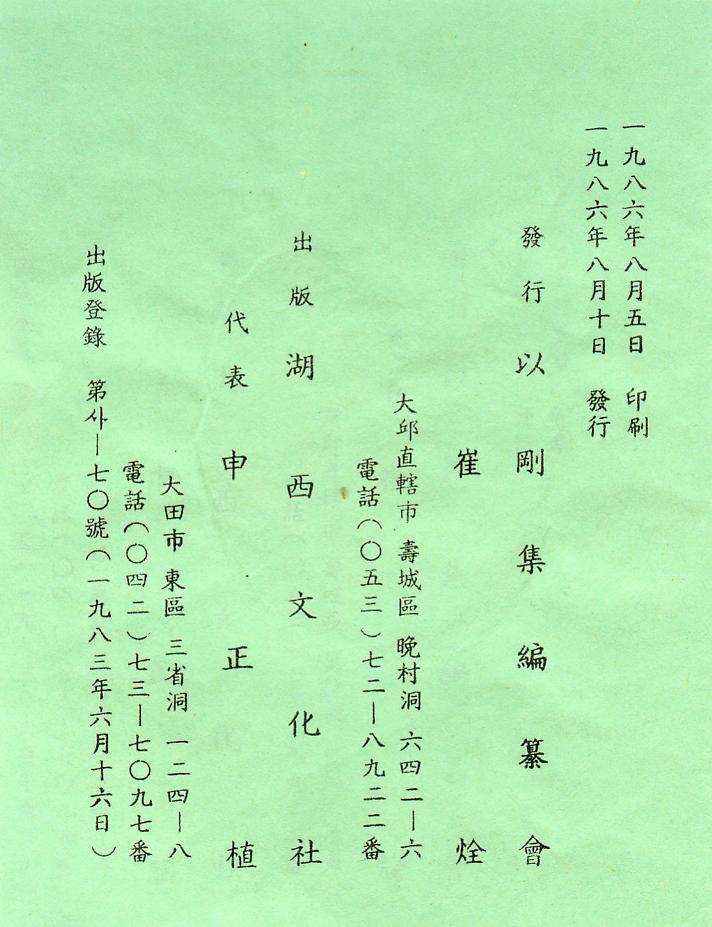 一九八六年八月五日 印刷
一九八六年八月十日 發行
發行 以剛集編纂會
崔烇
大邱直轄市 壽城區 晩村洞 六四二—六
電話(〇五三)七二—八九二二番
出版 湖西文化社
代表 申正植
大田市 東區 三省洞 一二四—八
電話(〇四二)七三—七〇九七番
出版登錄 第사—七〇號(一九八三年六月十六日)